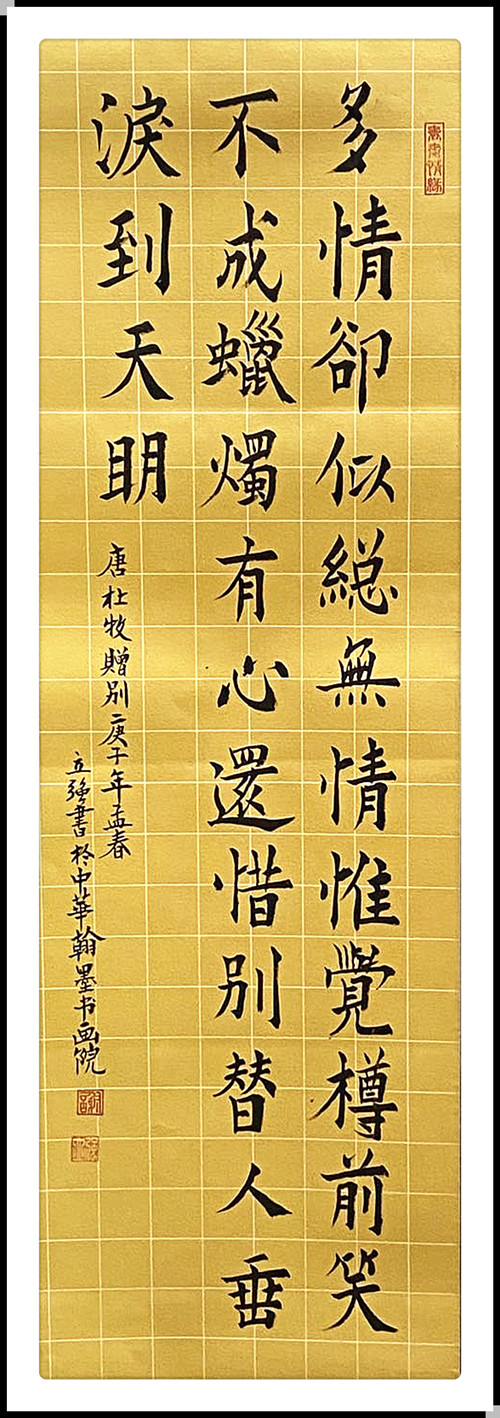 多情卻似縂無情惟覺樽前笑
不成蠟燭有心還惜别替人垂
淚到天眀
唐杜牧贈别二庚子年孟春
立强書於中華翰墨书画院